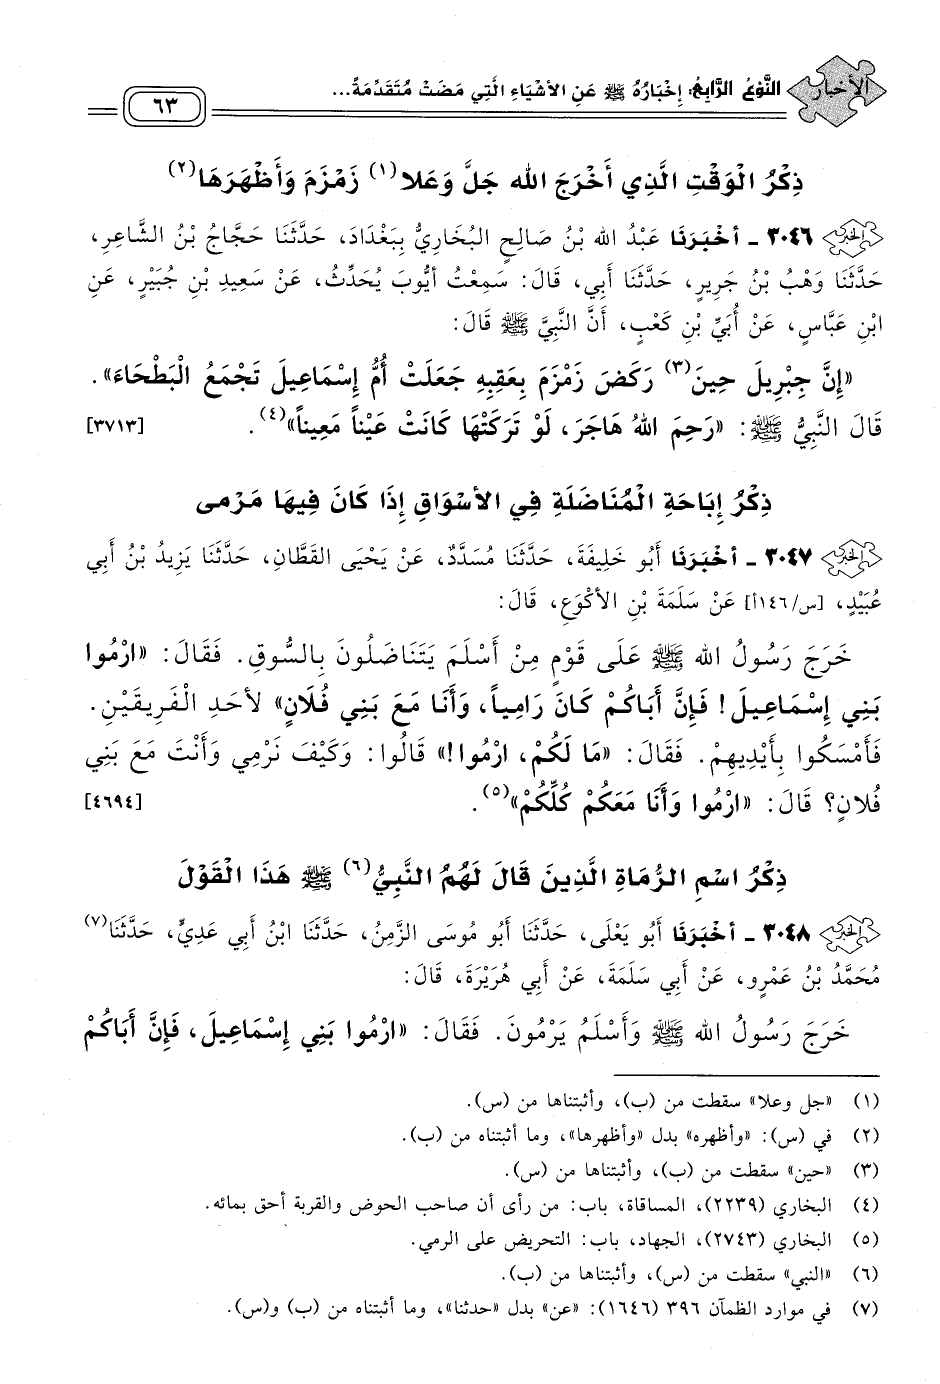 الأخبار
النَّوْعُ الرَّابِعُ: إِخْبَارُهُ ﷺ عَنِ الأَشْيَاءِ الَّتِي مَضَتْ مُتَقَدِّمَةً...
٦٣
ذِكْرُ الْوَقْتِ الَّذِي أَخْرَجَ الله جَلَّ وَعَلا(١) زَمْزَمَ وَأَظْهَرَهَا(٢)
٣٠٤٦ - أَخْبَرَنَا عَبْدُ الله بْنُ صَالِحٍ البُخَارِيُّ بِبَغْدَادَ، حَدَّثَنَا حَجَّاجُ بْنُ الشَّاعِرِ،
حَدَّثَنَا وَهْبُ بْنُ جَرِيرٍ، حَدَّثَنَا أَبِي، قَالَ: سَمِعْتُ أَيُّوبَ يُحَدِّثُ، عَنْ سَعِيدِ بْنِ جُبَيْرٍ، عَنِ
ابْنِ عَبَّاسٍ، عَنْ أُبَيِّ بْنِ كَعْبٍ، أَنَّ النَّبِيَّ ﷺ قَالَ:
«إِنَّ جِبْرِيلَ حِينَ(٣) رَكَضَ زَمْزَمَ بِعَقِبِهِ جَعَلَتْ أُمُّ إِسْمَاعِيلَ تَجْمَعُ الْبَطْحَاءَ».
قَالَ النَّبِيُّ ﷺ: «رَحِمَ اللهُ هَاجَرَ، لَوْ تَرَكَتْهَا كَانَتْ عَيْناً مَعِيناً»(٤). [٣٧١٣]
ذِكْرُ إِبَاحَةِ الْمُنَاضَلَةِ فِي الأَسْوَاقِ إِذَا كَانَ فِيهَا مَرْمى
٣٠٤٧ - أَخْبَرَنَا أَبُو خَلِيفَةَ، حَدَّثَنَا مُسَدَّدٌ، عَنْ يَحْيَى القَطَّانِ، حَدَّثَنَا يَزِيدُ بْنُ أَبِي
عُبَيْدٍ، [س/١٤٦أ] عَنْ سَلَمَةَ بْنِ الأَكْوَعِ، قَالَ:
خَرَجَ رَسُولُ الله ﷺ عَلَى قَوْمٍ مِنْ أَسْلَمَ يَتَنَاضَلُونَ بِالسُّوقِ. فَقَالَ: «ارْمُوا
بَنِي إِسْمَاعِيلَ! فَإِنَّ أَبَاكُمْ كَانَ رَامِياً، وَأَنَا مَعَ بَنِي فُلَانٍ» لأَحَدِ الْفَرِيقَيْنِ.
فَأَمْسَكُوا بِأَيْدِيهِمْ. فَقَالَ: «مَا لَكُمْ، ارْمُوا!» قَالُوا: وَكَيْفَ نَرْمِي وَأَنْتَ مَعَ بَنِي
فُلانٍ؟ قَالَ: «ارْمُوا وَأَنَا مَعَكُمْ كُلِّكُمْ»(٥). [٤٦٩٤]
ذِكْرُ اسْمِ الرُّمَاةِ الَّذِينَ قَالَ لَهُمُ النَّبِيُّ(٦) ﷺ هَذَا الْقَوْلَ
٣٠٤٨ - أَخْبَرَنَا أَبُو يَعْلَى، حَدَّثَنَا أَبُو مُوسَى الزَّمِنُ، حَدَّثَنَا ابْنُ أَبِي عَدِيٍّ، حَدَّثَنَا(٧)
مُحَمَّدُ بْنُ عَمْرٍو، عَنْ أَبِي سَلَمَةَ، عَنْ أَبِي هُرَيْرَةَ، قَالَ:
خَرَجَ رَسُولُ الله ﷺ وَأَسْلَمُ يَرْمُونَ. فَقَالَ: «ارْمُوا بَنِي إِسْمَاعِيلَ، فَإِنَّ أَبَاكُمْ
(١) «جل وعلا» سقطت من (ب)، وأثبتناها من (س).
(٢) في (س): «وأظهره» بدل «وأظهرها»، وما أثبتناه من (ب).
(٣) «حين» سقطت من (ب)، وأثبتناها من (س).
(٤) البخاري (٢٢٣٩)، المساقاة، باب: من رأى أن صاحب الحوض والقربة أحق بمائه.
(٥) البخاري (٢٧٤٣)، الجهاد، باب: التحريض على الرمي.
(٦) «النبي» سقطت من (س)، وأثبتناها من (ب).
(٧) في موارد الظمآن ٣٩٦ (١٦٤٦): «عن» بدل «حدثنا»، وما أثبتناه من (ب) و(س).